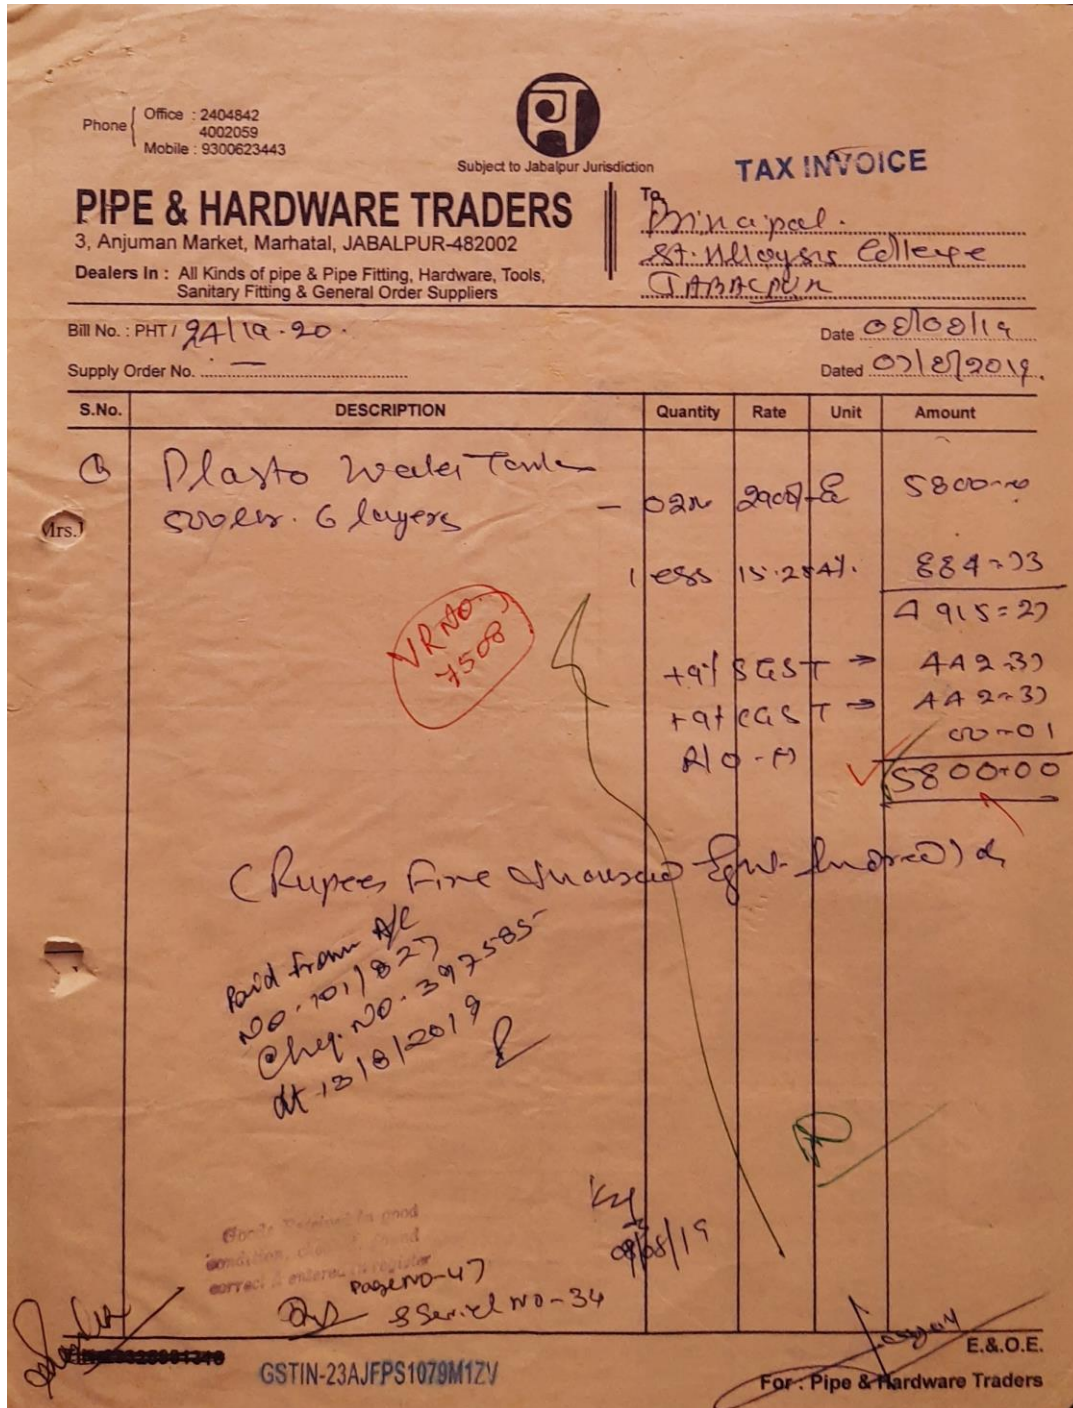 Phone
Office : 2404842
4002059
Mobile : 9300623443
Subject to Jabalpur Jurisdiction
TAX INVOICE
PIPE & HARDWARE TRADERS
3, Anjuman Market, Marhatal, JABALPUR-482002
Dealers In : All Kinds of pipe & Pipe Fitting, Hardware, Tools,
Sanitary Fitting & General Order Suppliers
To,
Principal.
St. Aloysius College
JABALPUR
Bill No. : PHT / 24/19-20.
Date 08/08/19
Supply Order No. —
Dated 07/8/2019.
S.No. DESCRIPTION Quantity Rate Unit Amount
Plasto Water Tank
500 ltr. 6 layers — 02N 2900/- 5800=00
Mrs.
Less 15.254% 884=73
4915=27
+9% SGST → 442=37
+9% CGST → 442=37
R/O - (-) 00=01
5800=00
VR NO.
7508
(Rupees Five thousand Eight hundred)
Paid from A/C
No. 101/827
Chq. No. 397585-
dt 13/8/2019
08/08/19
Goods Received in good
condition, checked found
correct & entered in register
Page NO-47
& Seriel NO-34
GSTIN-23AJFPS1079M1ZV
E.&.O.E.
For : Pipe & Hardware Traders